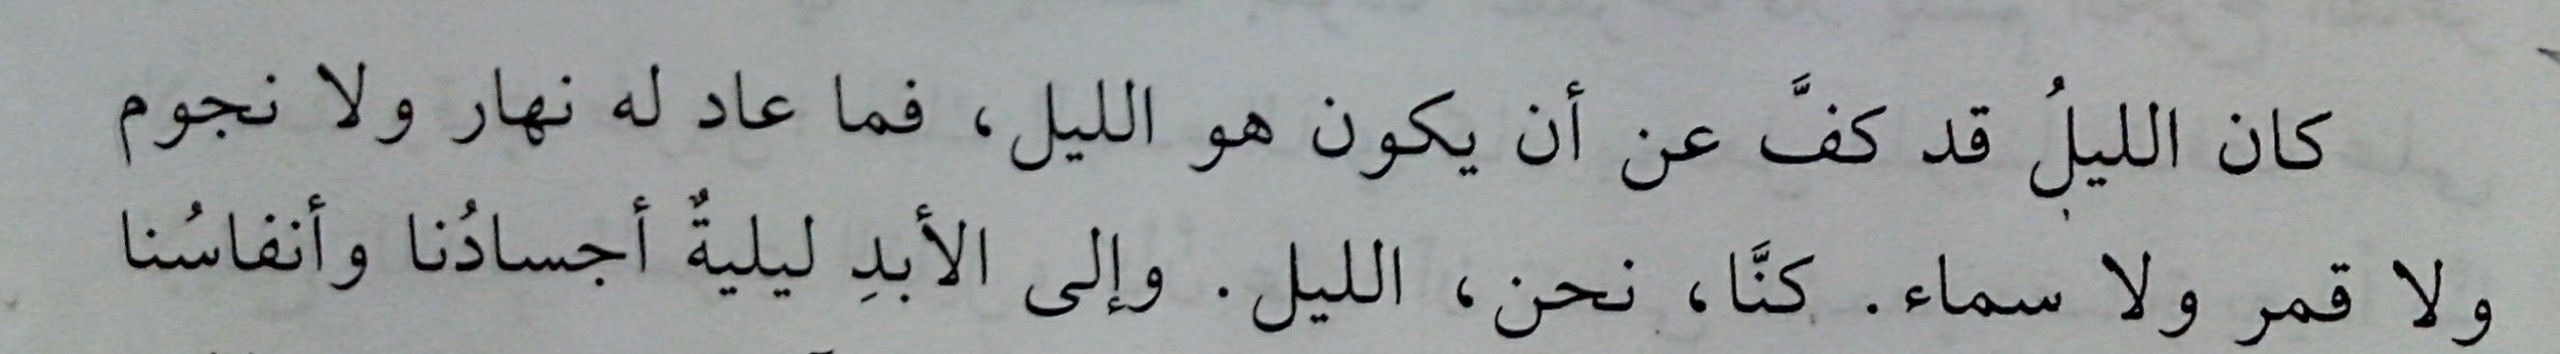 كان الليلُ قد كفَّ عن أن يكون هو الليل، فما عاد له نهار ولا نجوم
ولا قمر ولا سماء. كنَّا، نحن، الليل. وإلى الأبدِ ليليةٌ أجسادُنا وأنفاسُنا